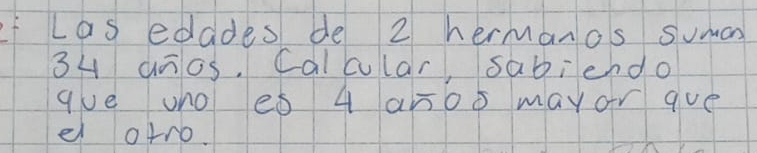 2: Las edades de 2 hermanos suman
34 años. Calcular, sabiendo
que uno es 4 años mayor que
el otro.